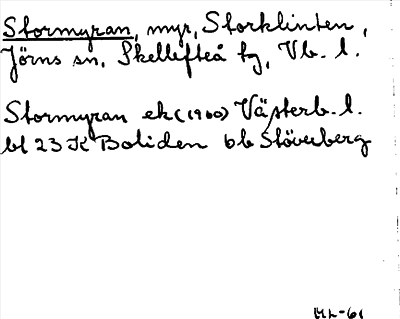 Stormyran, myr, Storklinten,
Jörns sn, Skellefteå tg, Vb. l.
Stormyran ek (1960) Västerb. l.
bl 23 K Boliden 6b Stöverberg
ML-61